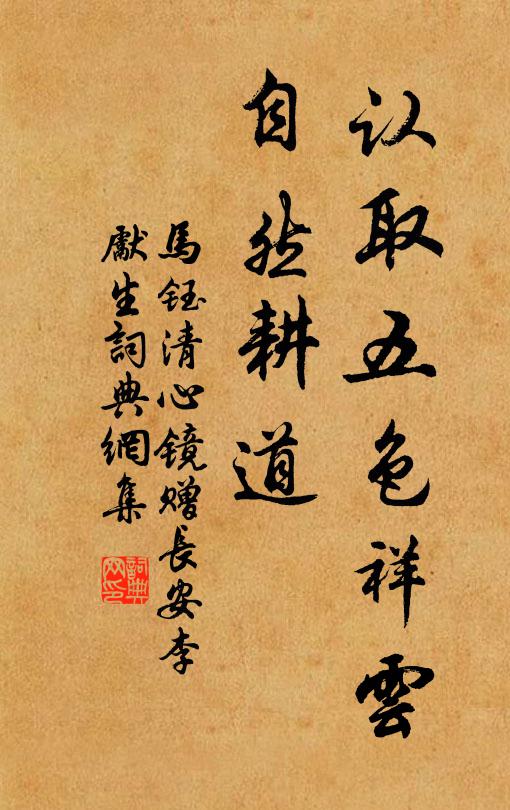 认取五色祥雲
自然耕道
馬鈺清心镜赠長安李
獻生詞典網集
詞典网印